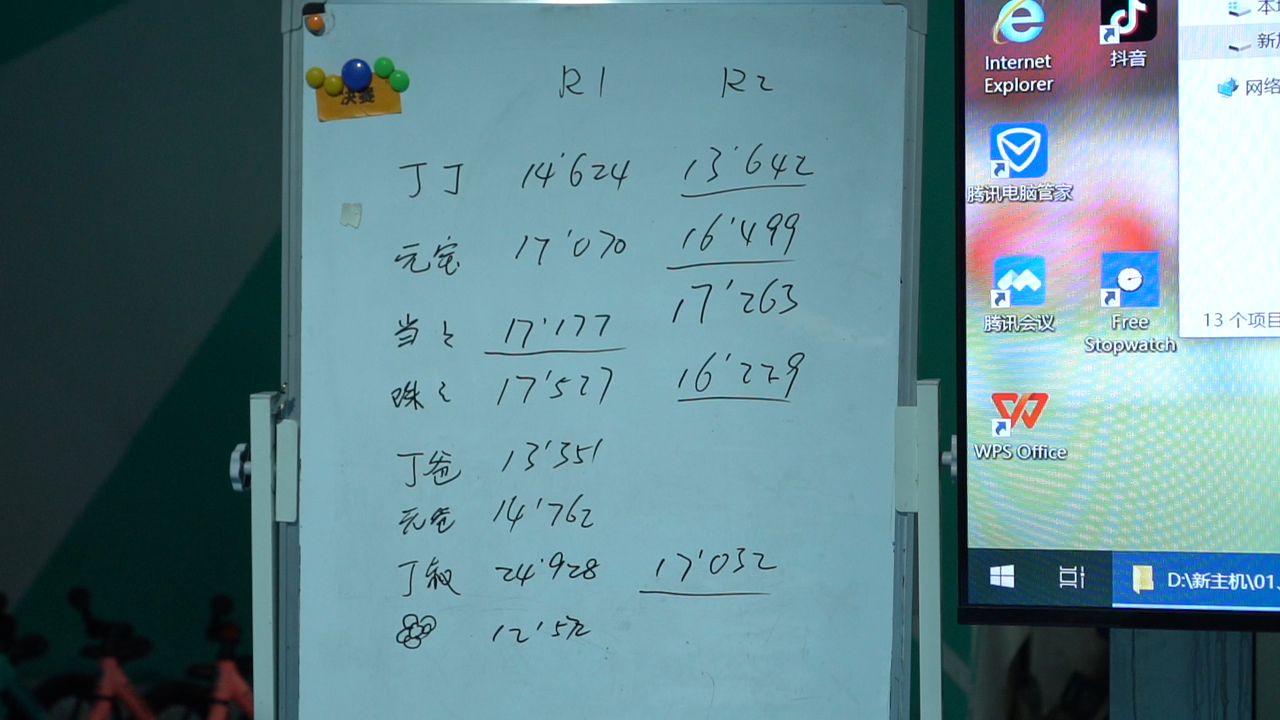 决赛
R1 R2
丁丁 14'624 13'642
元宝 17'070 16'499
当々 17'177 17'263
珠々 17'527 16'229
丁爸 13'351
元爸 14'762
丁叔 24'928 17'032
12'572
Internet Explorer
抖音
腾讯电脑管家
腾讯会议
Free Stopwatch
WPS Office
网络
13 个项目
D:\新主机\01.